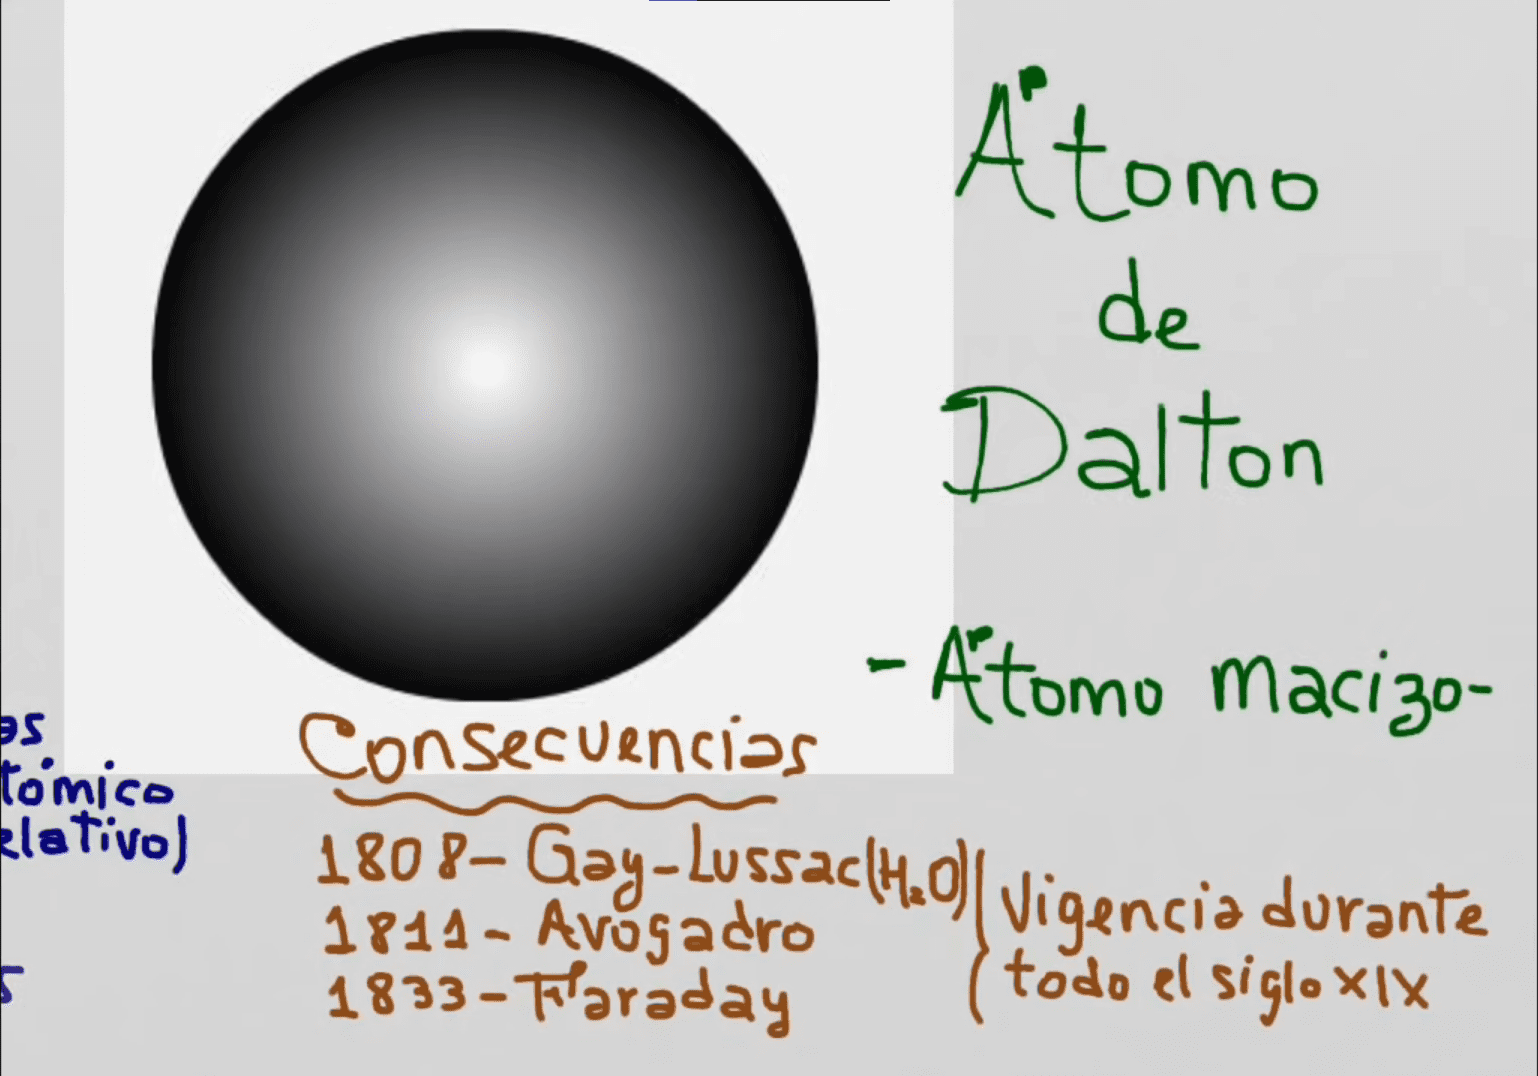 Átomo
de
Dalton
- Átomo macizo -
as
tómico
elativo)
s
Consecuencias
1808 - Gay-Lussac (H₂O)
1811 - Avogadro
1833 - Faraday
Vigencia durante
todo el siglo XIX